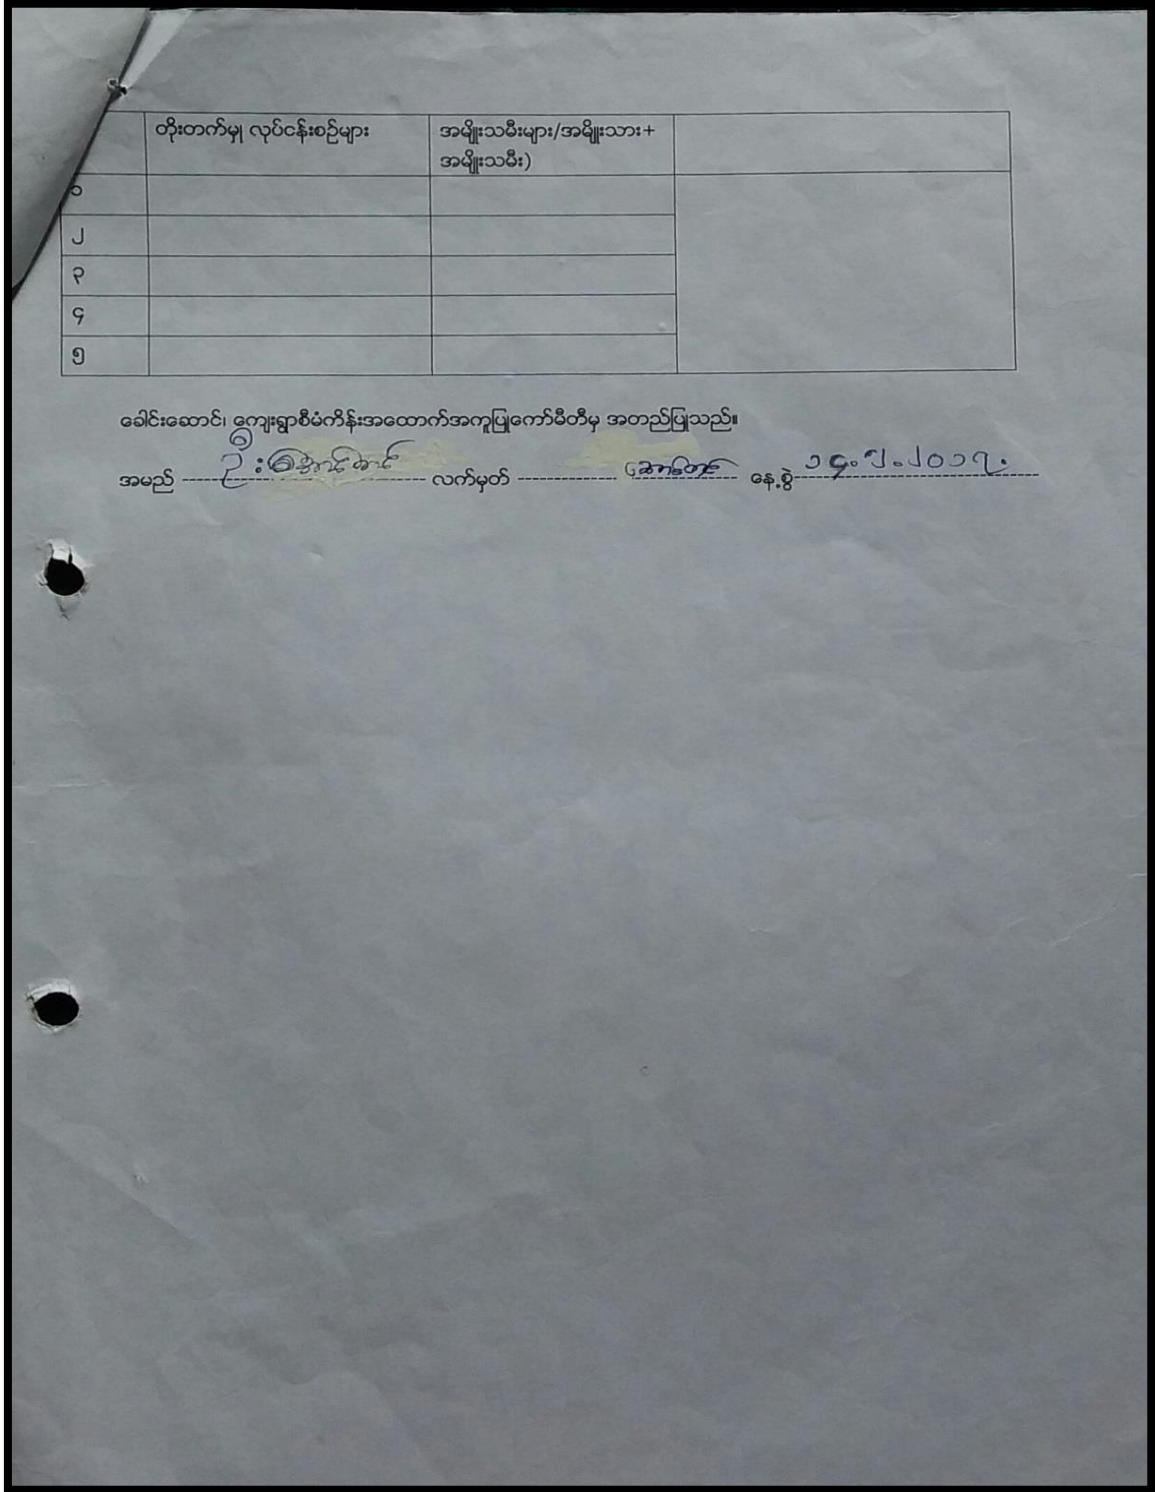 တိုးတက်မှု လုပ်ငန်းစဉ်များ
အမျိုးသမီးများ/အမျိုးသား+
အမျိုးသမီး)
၁
၂
၃
၄
၅
ခေါင်းဆောင်၊ ကျေးရွာစီမံကိန်းအထောက်အကူပြုကော်မီတီမှ အတည်ပြုသည်။
အမည် ဦးအောင်တင် လက်မှတ် အောင်တင် နေ့စွဲ ၁၄.၅.၂၀၁၇.